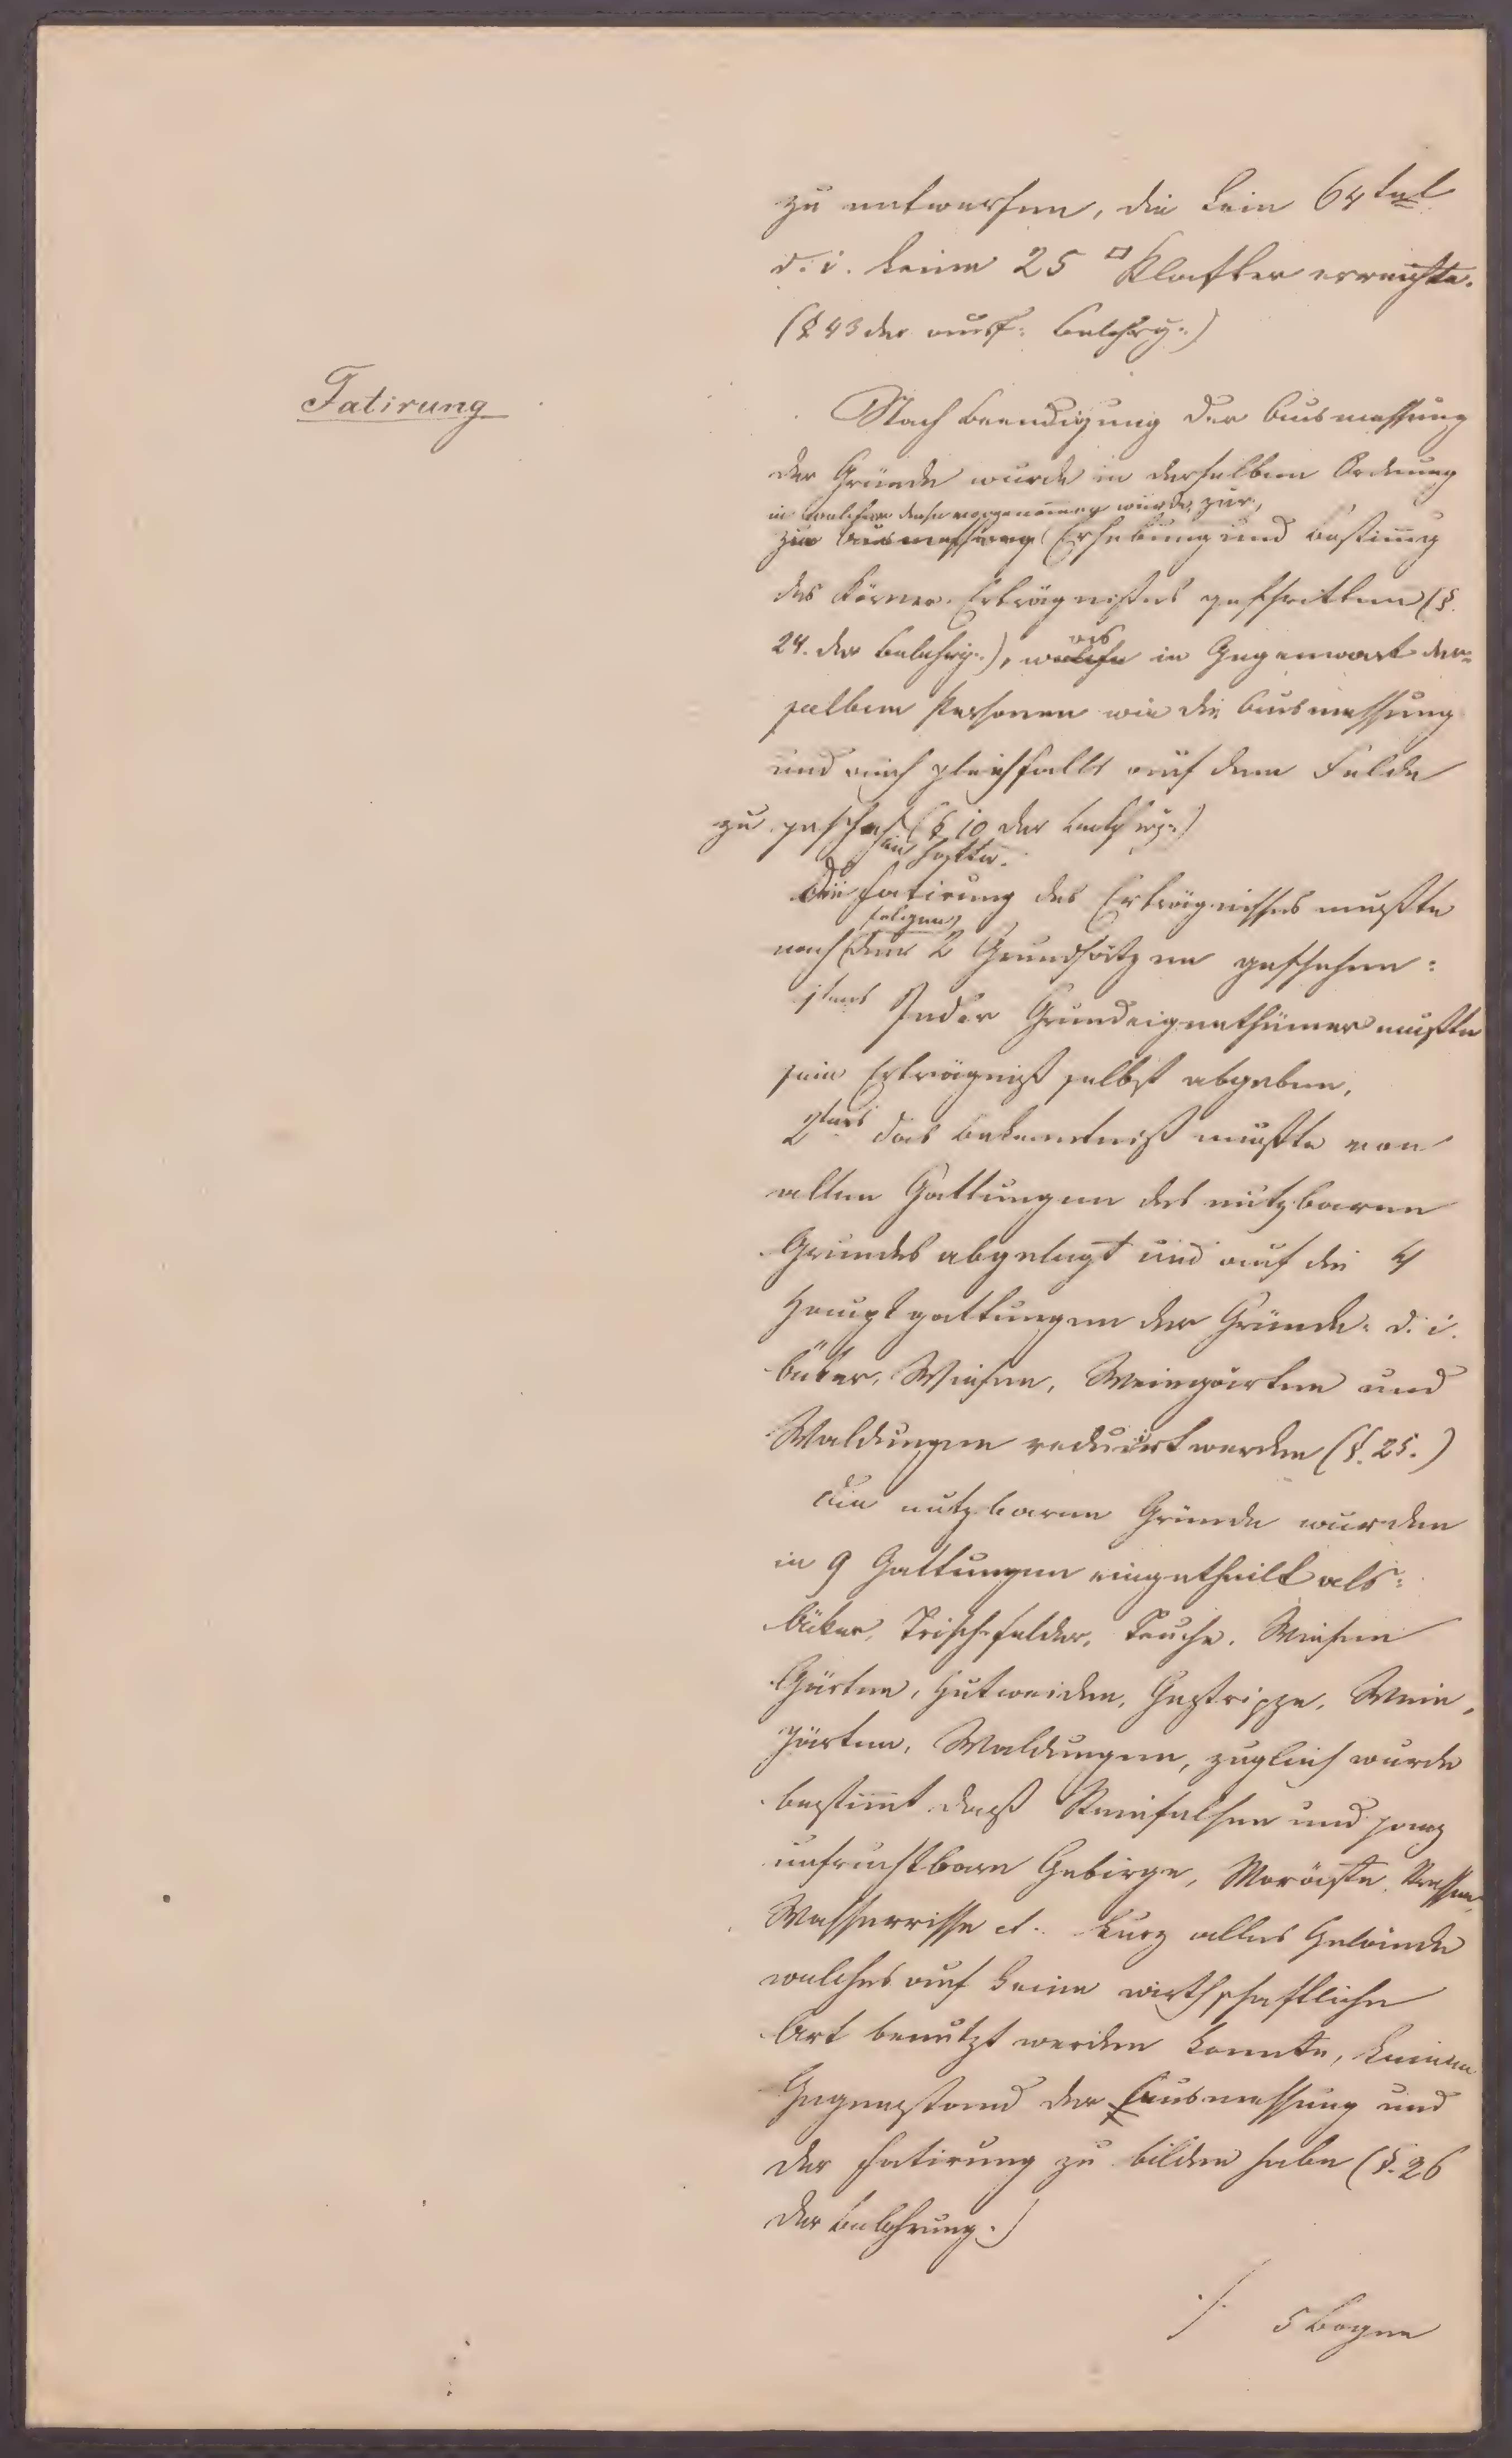 zu entwerfen, die kein 64tel
d. i. keine 25 □ Klafter erreichte.
(§ 43 der ausf: Belehrg:)
Fatirung
Nach Beendigung der Ausmessung
der Gründe wurde in derselben Ordnung
in welcher diese vorgenommen wurde, zur
zur Ausmessung Erhebung und Bestim̄g
des Körner-Erträgnißes geschritten (§.
24. der Belehrg:), welche es in Gegenwart der-
selben Personen wie die Ausmessung
und auch gleichfalls auf dem Felde
zu geschehen (§ 10 der Belehrg:)
hatte.
Die Fatirung des Erträgnisses mußte
folgenden
nach den 2 Grundsätzen geschehen:
1tens Jeder Grundeigenthümer mußte
sein Erträgniß selbst abgeben,
2tens das Bekenntniß mußte von
allen Gattungen des nutzbaren
Grundes abgelegt und auf die 4
Hauptgattungen der Gründe: d. i.
Äcker, Wiesen, Weingärten und
Waldungen reducirt werden (§. 25.)
Die nutzbaren Gründe wurden
in 9 Gattungen eingetheilt als:
Äcker, Trischfelder, Teuche, Wiesen
Gärten, Hutweiden, Gestrippe, Wein-
gärten, Waldungen, zugleich wurde
bestim̄t daß Steinfelsen und ganz
unfruchtbare Gebirge, Moräste, Strassen,
Wasserrisse et. kurz alles Gelände
welches auf keine wirthschaftliche
Art benützt werden konnte, keinen
Gegenstand der Ausmessung und
der Fatirung zu bilden habe (§. 26
der Belehrung.)
./. 5 Bogen